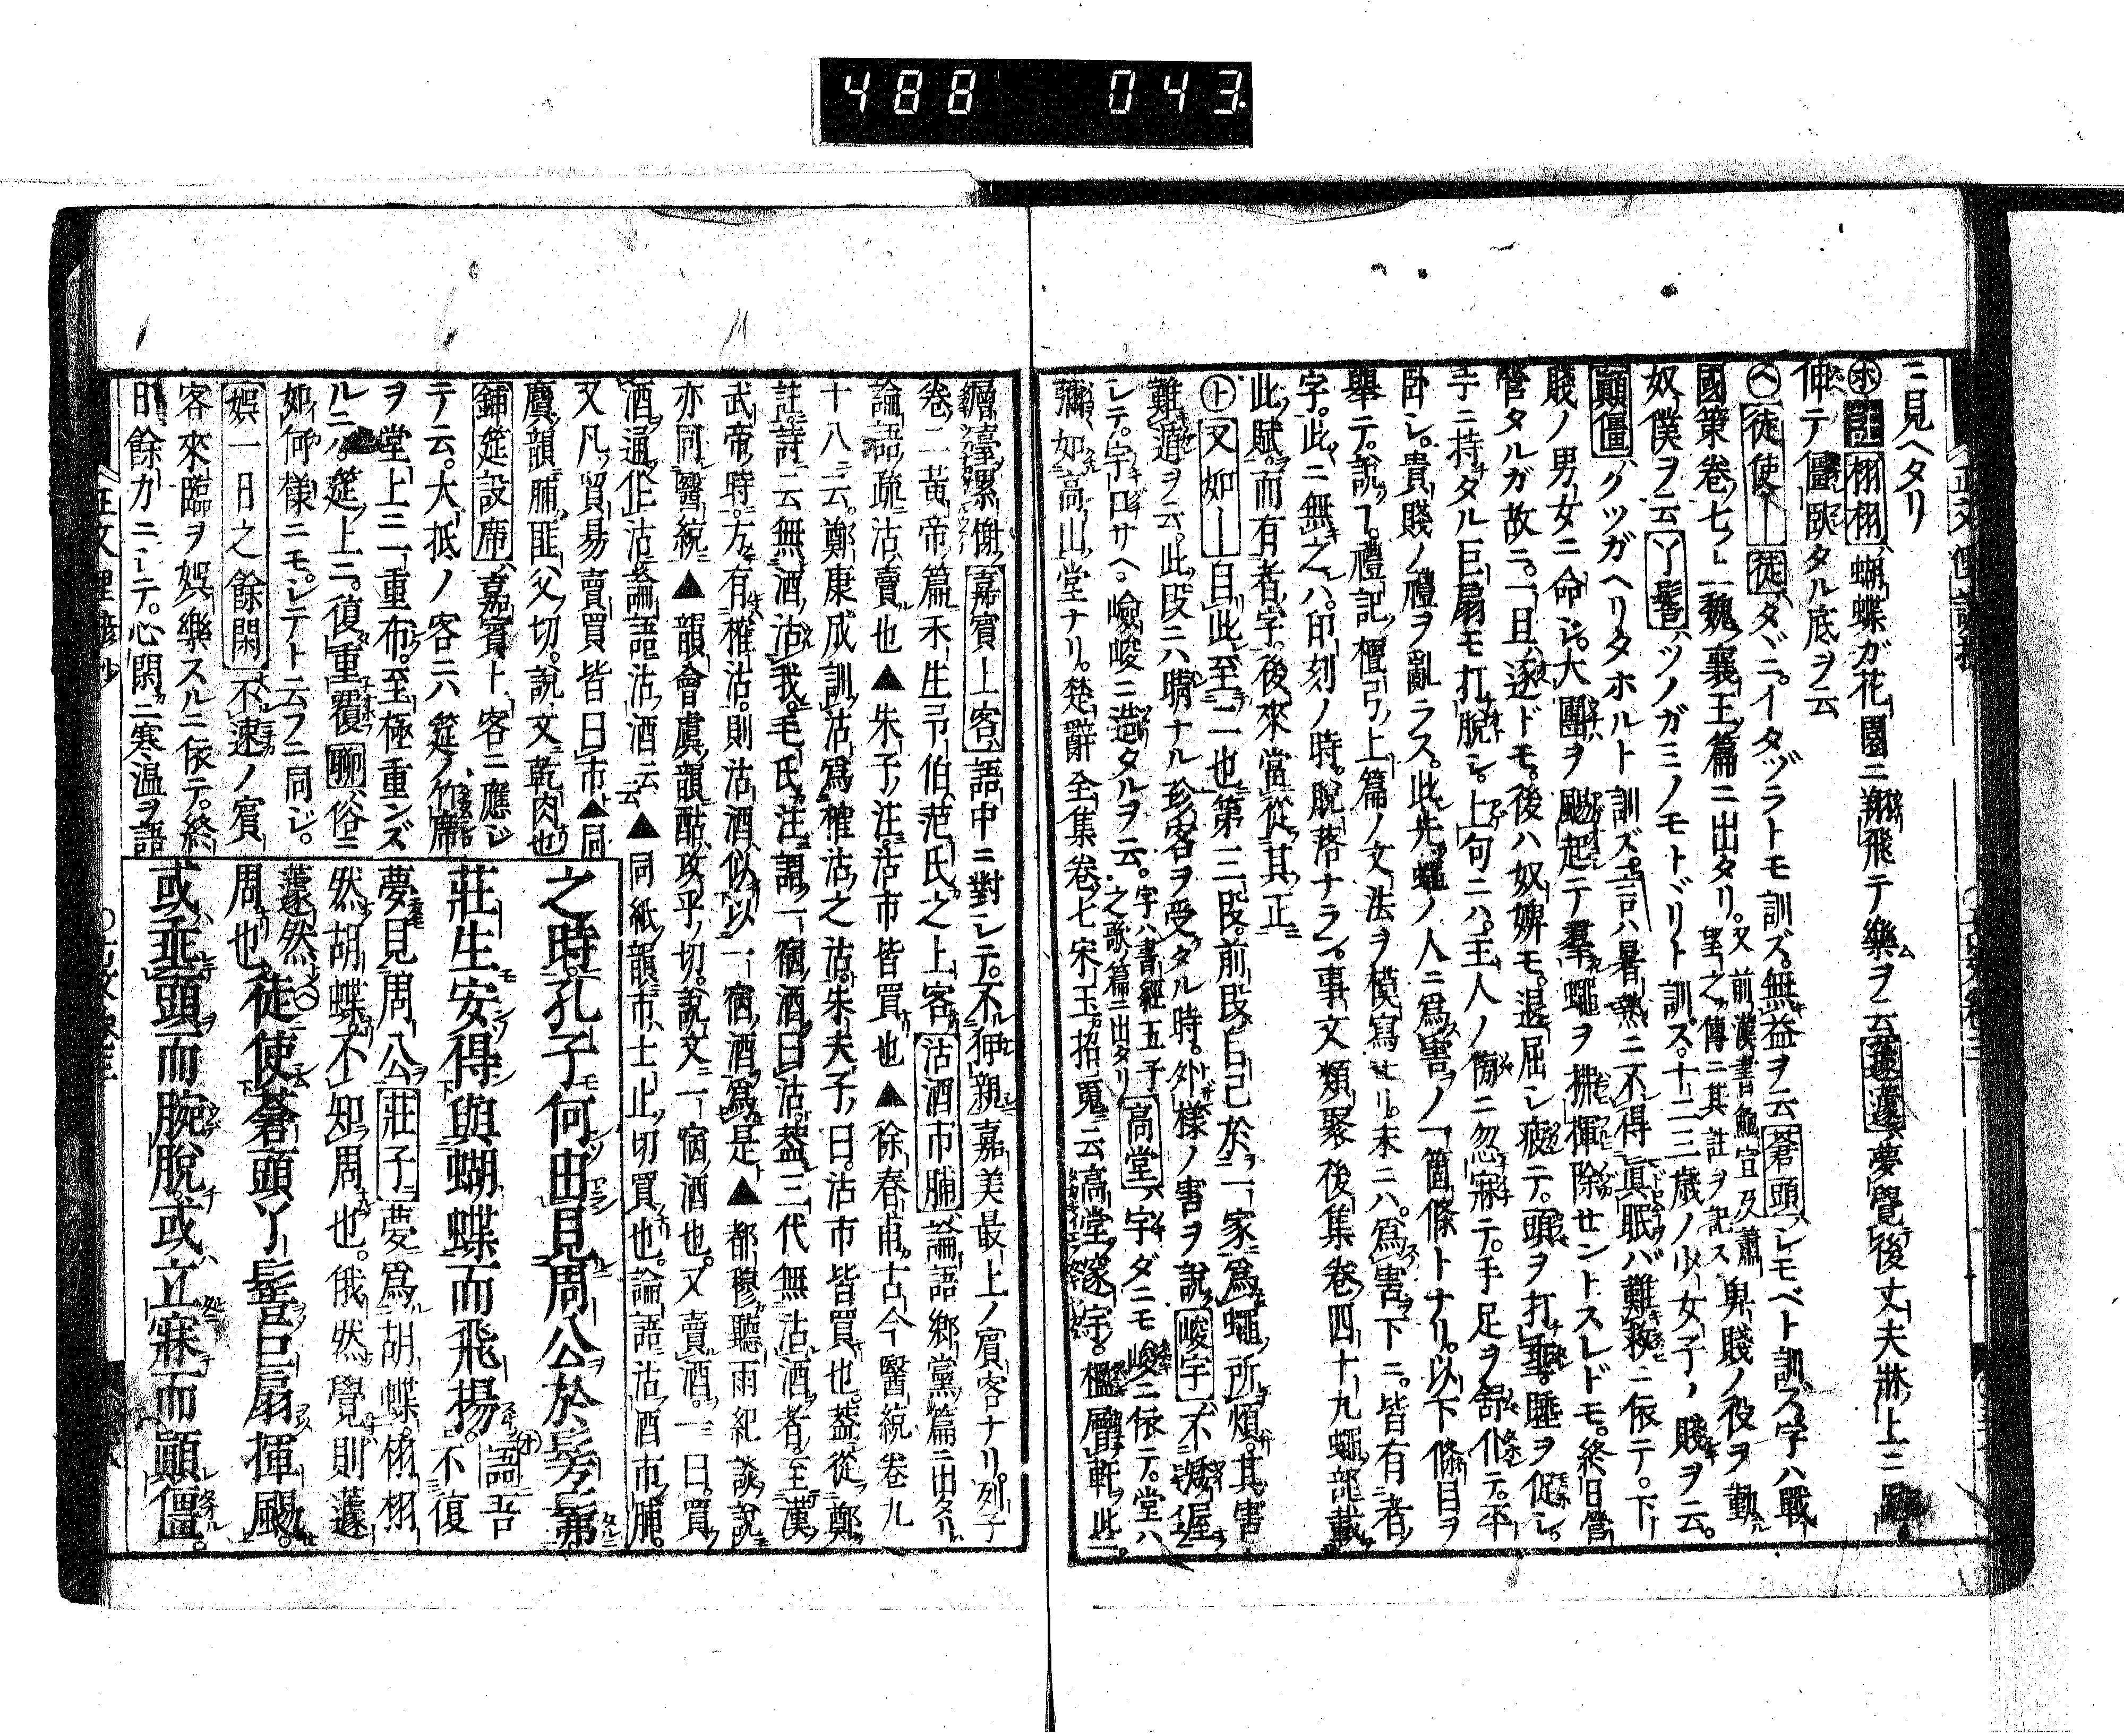 488 043
ニ見ヘタリ
㋭註栩栩、蝴蝶ガ花園ニ翔飛テ樂ヲ云蘧蘧、夢覺後丈夫牀上ニ
伸テ僵臥タル底ヲ云
㋬徒使—徒、タヾニ。イタヅラトモ訓ズ。無益ヲ云蒼頭、シモベト訓ズ字ハ戰
國策卷七ノ二魏襄王篇ニ出タリ。又前漢書鮑宣及蕭望之傳ニ其註ヲ記ス卑賤ノ役ヲ勤ル
奴僕ヲ云丫髻、ツノガミノモトドリト訓ズ。十二三歲ノ少女子ノ賤ヲ云。
顚僵、クツガヘリタホルト訓ズ。言ハ暑熱ニ不得眞眠バ難救ニ依テ。下
賤ノ男女ニ命シ。大團ヲ颺起テ羣蠅ヲ拂揮除セントスレドモ。終日營
營タルガ故ニ。一旦逐ドモ。後ハ奴婢モ。退屈シ疲テ。頭ヲ打垂。睡ヲ促シ。
手ニ持タル巨扇モ打脫シ。上句ニハ。主人ノ傍ニ忽寐テ。手足ヲ舒仆テ。平
臥シ。貴賤ノ禮ヲ亂ラス。此先蠅ノ人ニ爲害ノ一箇條トナリ。以下條目ヲ
擧テ。說フ。禮記檀弓上篇ノ文法ヲ模寫セリ。末ニハ。爲害下ニ。皆有者
字。此ニ無之ハ。印刻ノ時。脫落ナラン。事文類聚後集卷四十九蠅部載
此賦。而有者字。後來當從其正
㋣又如—自此至二也第三段。前段自己於一家爲蠅所煩。其害
難遁ヲ云。此段ニハ晴ナル珍客ヲ受タル時。外樣ノ害ヲ說峻宇、不
シテ。字ロサヘ。嶮峻ニ造タルヲ云。字ハ書經五子之歌篇ニ出タリ高堂、宇ダニモ峻ニ依テ。堂ハ
彌如高山堂ナリ。楚辭全集卷七宋玉招魂ニ云高堂邃宇。檻層軒ヲ此ニ。
層臺累榭嘉賓上客、語中ニ對シテ。不狎親嘉美最上ノ賓客ナリ。列子
卷二黃帝篇禾生子伯、范氏之上客沽酒市脯、論語鄉黨篇ニ出タリ
論語疏沽賣也▲朱子注。沽市皆買也▲徐春甫古今醫統卷九
十八ニ云。鄭康成訓沽爲榷沽之沽。朱夫子曰。沽市皆買也。蓋從鄭
註。詩ニ云無酒沽我。毛氏注謂一宿酒曰沽。蓋三代無沽酒者。至漢
武帝時。方有榷沽。則沽酒似以一宿酒爲是▲都穆聽雨紀談說
亦同醫統▲韻會虞韻酤攻乎切。說文一宿酒也。又賣酒。一曰。買
酒通作沽論語沽酒云云▲同紙韻市士止切買也。論語沽酒市脯。
又凡貿易賣買皆曰市▲同
麌韻脯匪父切。說文乾肉也
鋪筵設席、嘉賓上客ニ應シ
テ云。大抵ノ客ニハ筵竹席
ヲ堂上ニ一重布。至極重ンズ
ルニハ。筵上ニ。復重覆聊、俗ニ
如何樣ニモ。シテト云フニ同ジ。
娯一日之餘閑、不速ノ賓
客來臨ヲ娯樂スルニ依テ。終
日餘力ニシテ。心閑ニ寒溫ヲ語
之時。孔子何由見周公於髣髴
莊生安得與蝴蝶而飛揚。㋔語吾不復
夢見周公莊子夢爲胡蝶。栩栩
然胡蝶不知周也。俄然覺則蘧
蘧然周也㋬徒使蒼頭丫髻巨扇揮颺。
或垂頭而腕脫。或立寐而顚僵。